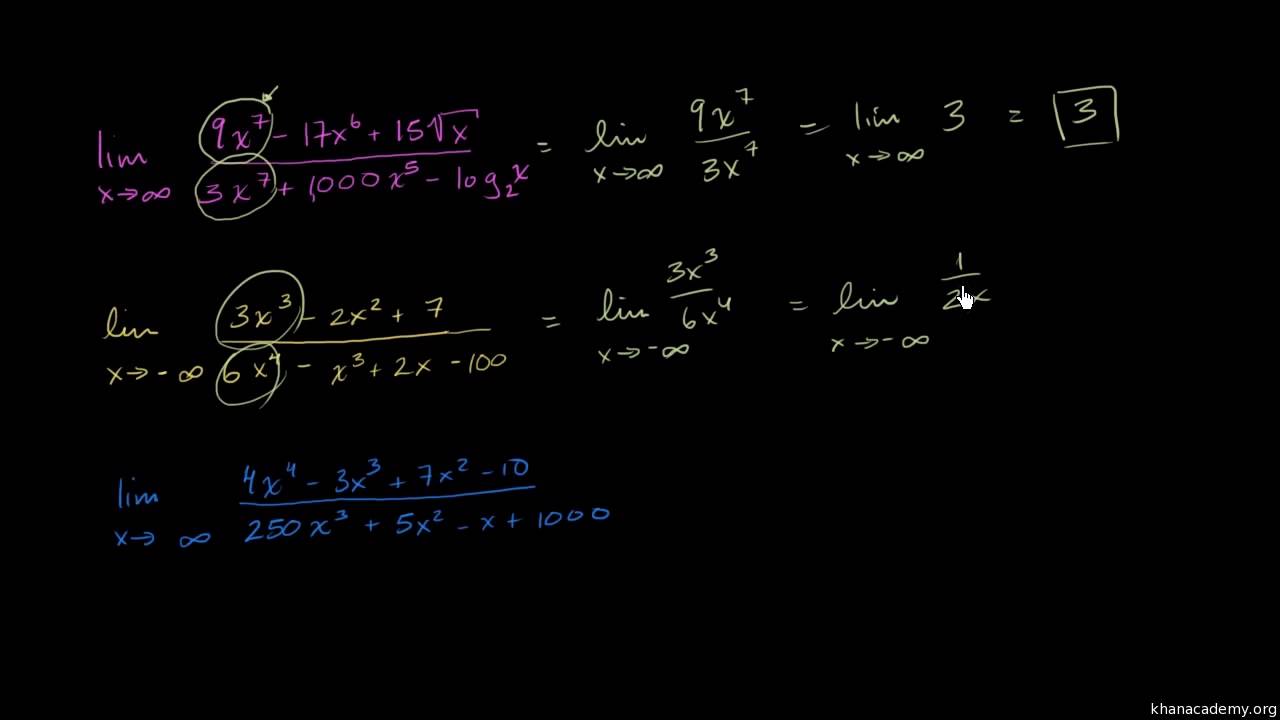 lim x→∞ (9x⁷ - 17x⁶ + 15√x) / (3x⁷ + 1,000x⁵ - log₂x) = lim x→∞ 9x⁷ / 3x⁷ = lim x→∞ 3 = 3
lim x→-∞ (3x³ - 2x² + 7) / (6x⁴ - x³ + 2x - 100) = lim x→-∞ 3x³ / 6x⁴ = lim x→-∞ 1 / 2x
lim x→∞ (4x⁴ - 3x³ + 7x² - 10) / (250x³ + 5x² - x + 1000)
khanacademy.org